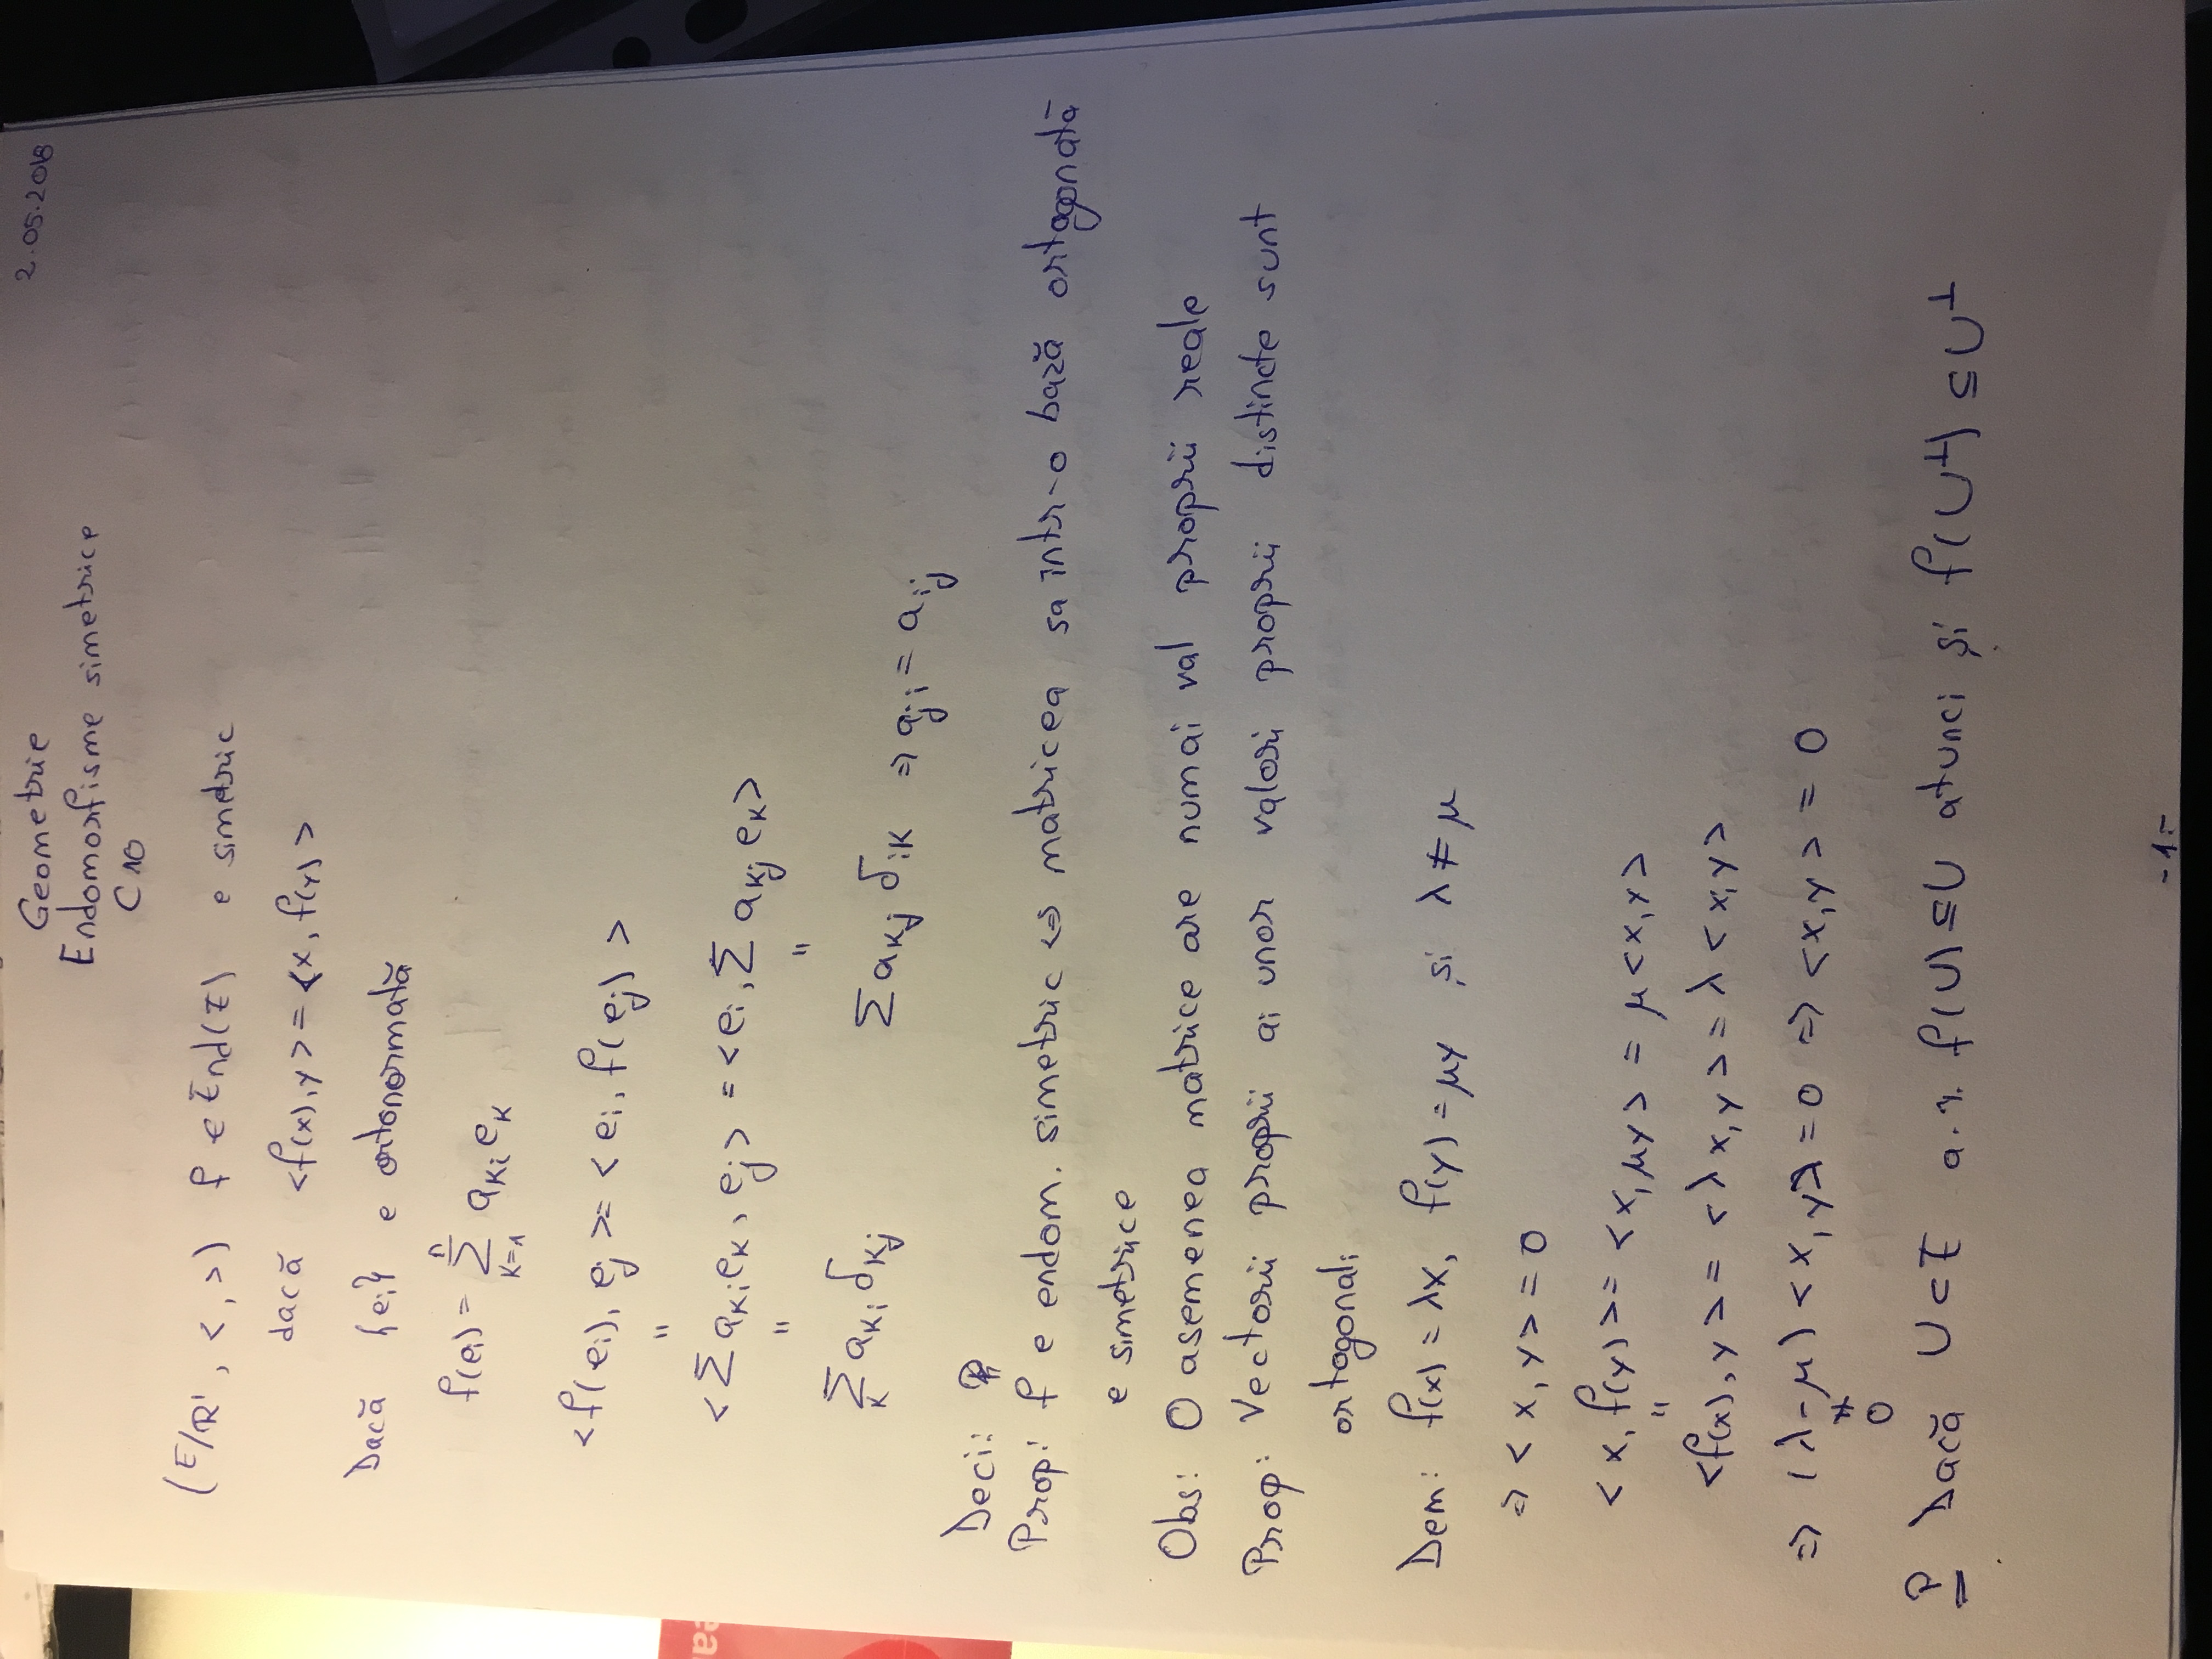 Geometrie
2.05.2018
Endomorfisme simetrice
C10
(E/R, < , >) f ∈ End(E) e simetric
dacă <f(x), y> = <x, f(y)>
Dacă {ei} e ortonormată
f(ei) = Σ_{k=1}^{n} a_{ki} e_k
<f(ei), ej> = <ei, f(ej)>
"
<Σ a_{ki} e_k, ej> = <ei, Σ a_{kj} e_k>
" "
Σ_k a_{ki} δ_{kj} Σ a_{kj} δ_{ik} => a_{ji} = a_{ij}
Deci:
Prop: f e endom. simetric <=> matricea sa într-o bază ortogonată
e simetrice
Obs: O asemenea matrice are numai val proprii reale
Prop: Vectorii proprii ai unor valori proprii distincte sunt
ortogonali
Dem: f(x) = λx, f(y) = μy și λ ≠ μ
=> <x, y> = 0
<x, f(y)> = <x, μy> = μ<x, y>
"
<f(x), y> = <λx, y> = λ<x, y>
=> (λ-μ) <x, y> = 0 => <x, y> = 0
≠
0
P Dacă U ⊂ E a.î. f(U) ⊆ U atunci și f(U⊥) ⊆ U⊥
-1-